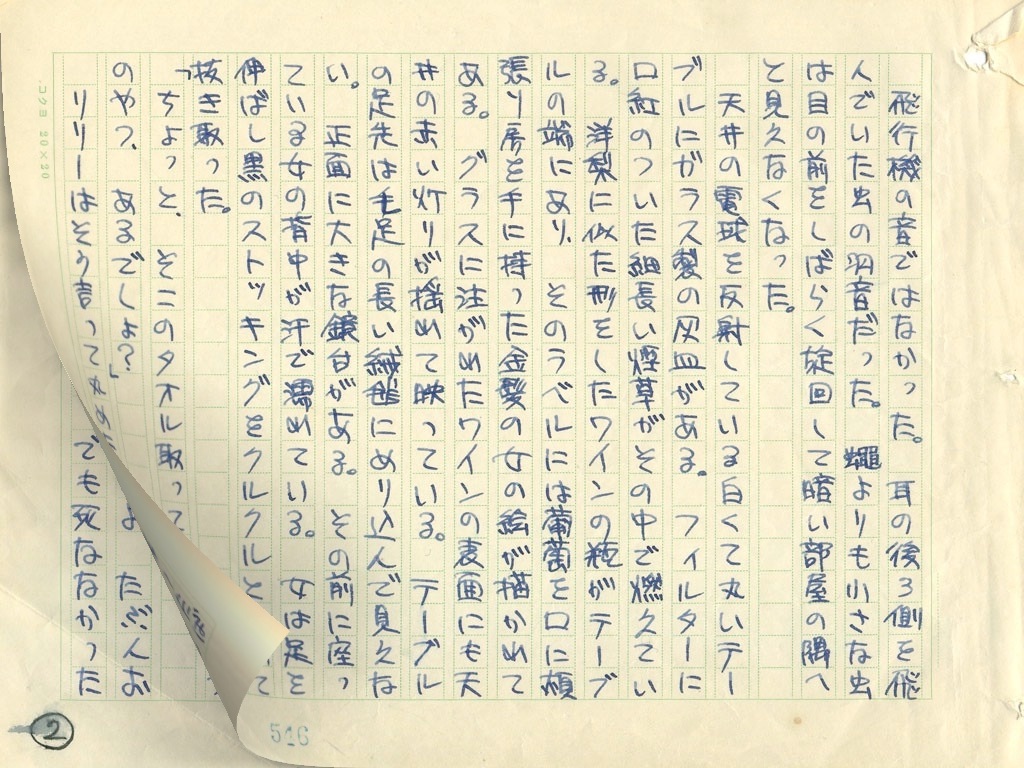 飛行機の音ではなかった。耳の後ろ側を飛
んでいた虫の羽音だった。蠅よりも小さな虫
は目の前をしばらく旋回して暗い部屋の隅へ
と見えなくなった。
天井の電球を反射している白くて丸いテー
ブルにガラス製の灰皿がある。フィルターに
口紅のついた細長い煙草がその中で燃えてい
る。洋梨に似た形をしたワインの瓶がテーブ
ルの端にあり、そのラベルには葡萄を口に頬
張り房を手に持った金髪の女の絵が描かれて
ある。グラスに注がれたワインの表面にも天
井の赤い灯りが揺れて映っている。テーブル
の足先は毛足の長い絨毯にめり込んで見えな
い。正面に大きな鏡台がある。その前に座っ
ている女の背中が汗で濡れている。女は足を
伸ばし黒のストッキングをクルクルと て
抜き取った。
「ちょっと、そこのタオル取って
のやつ、あるでしょ?」 よ たぶんお
リリーはそう言って丸め でも死ななかった
コクヨ 20×20
516
2